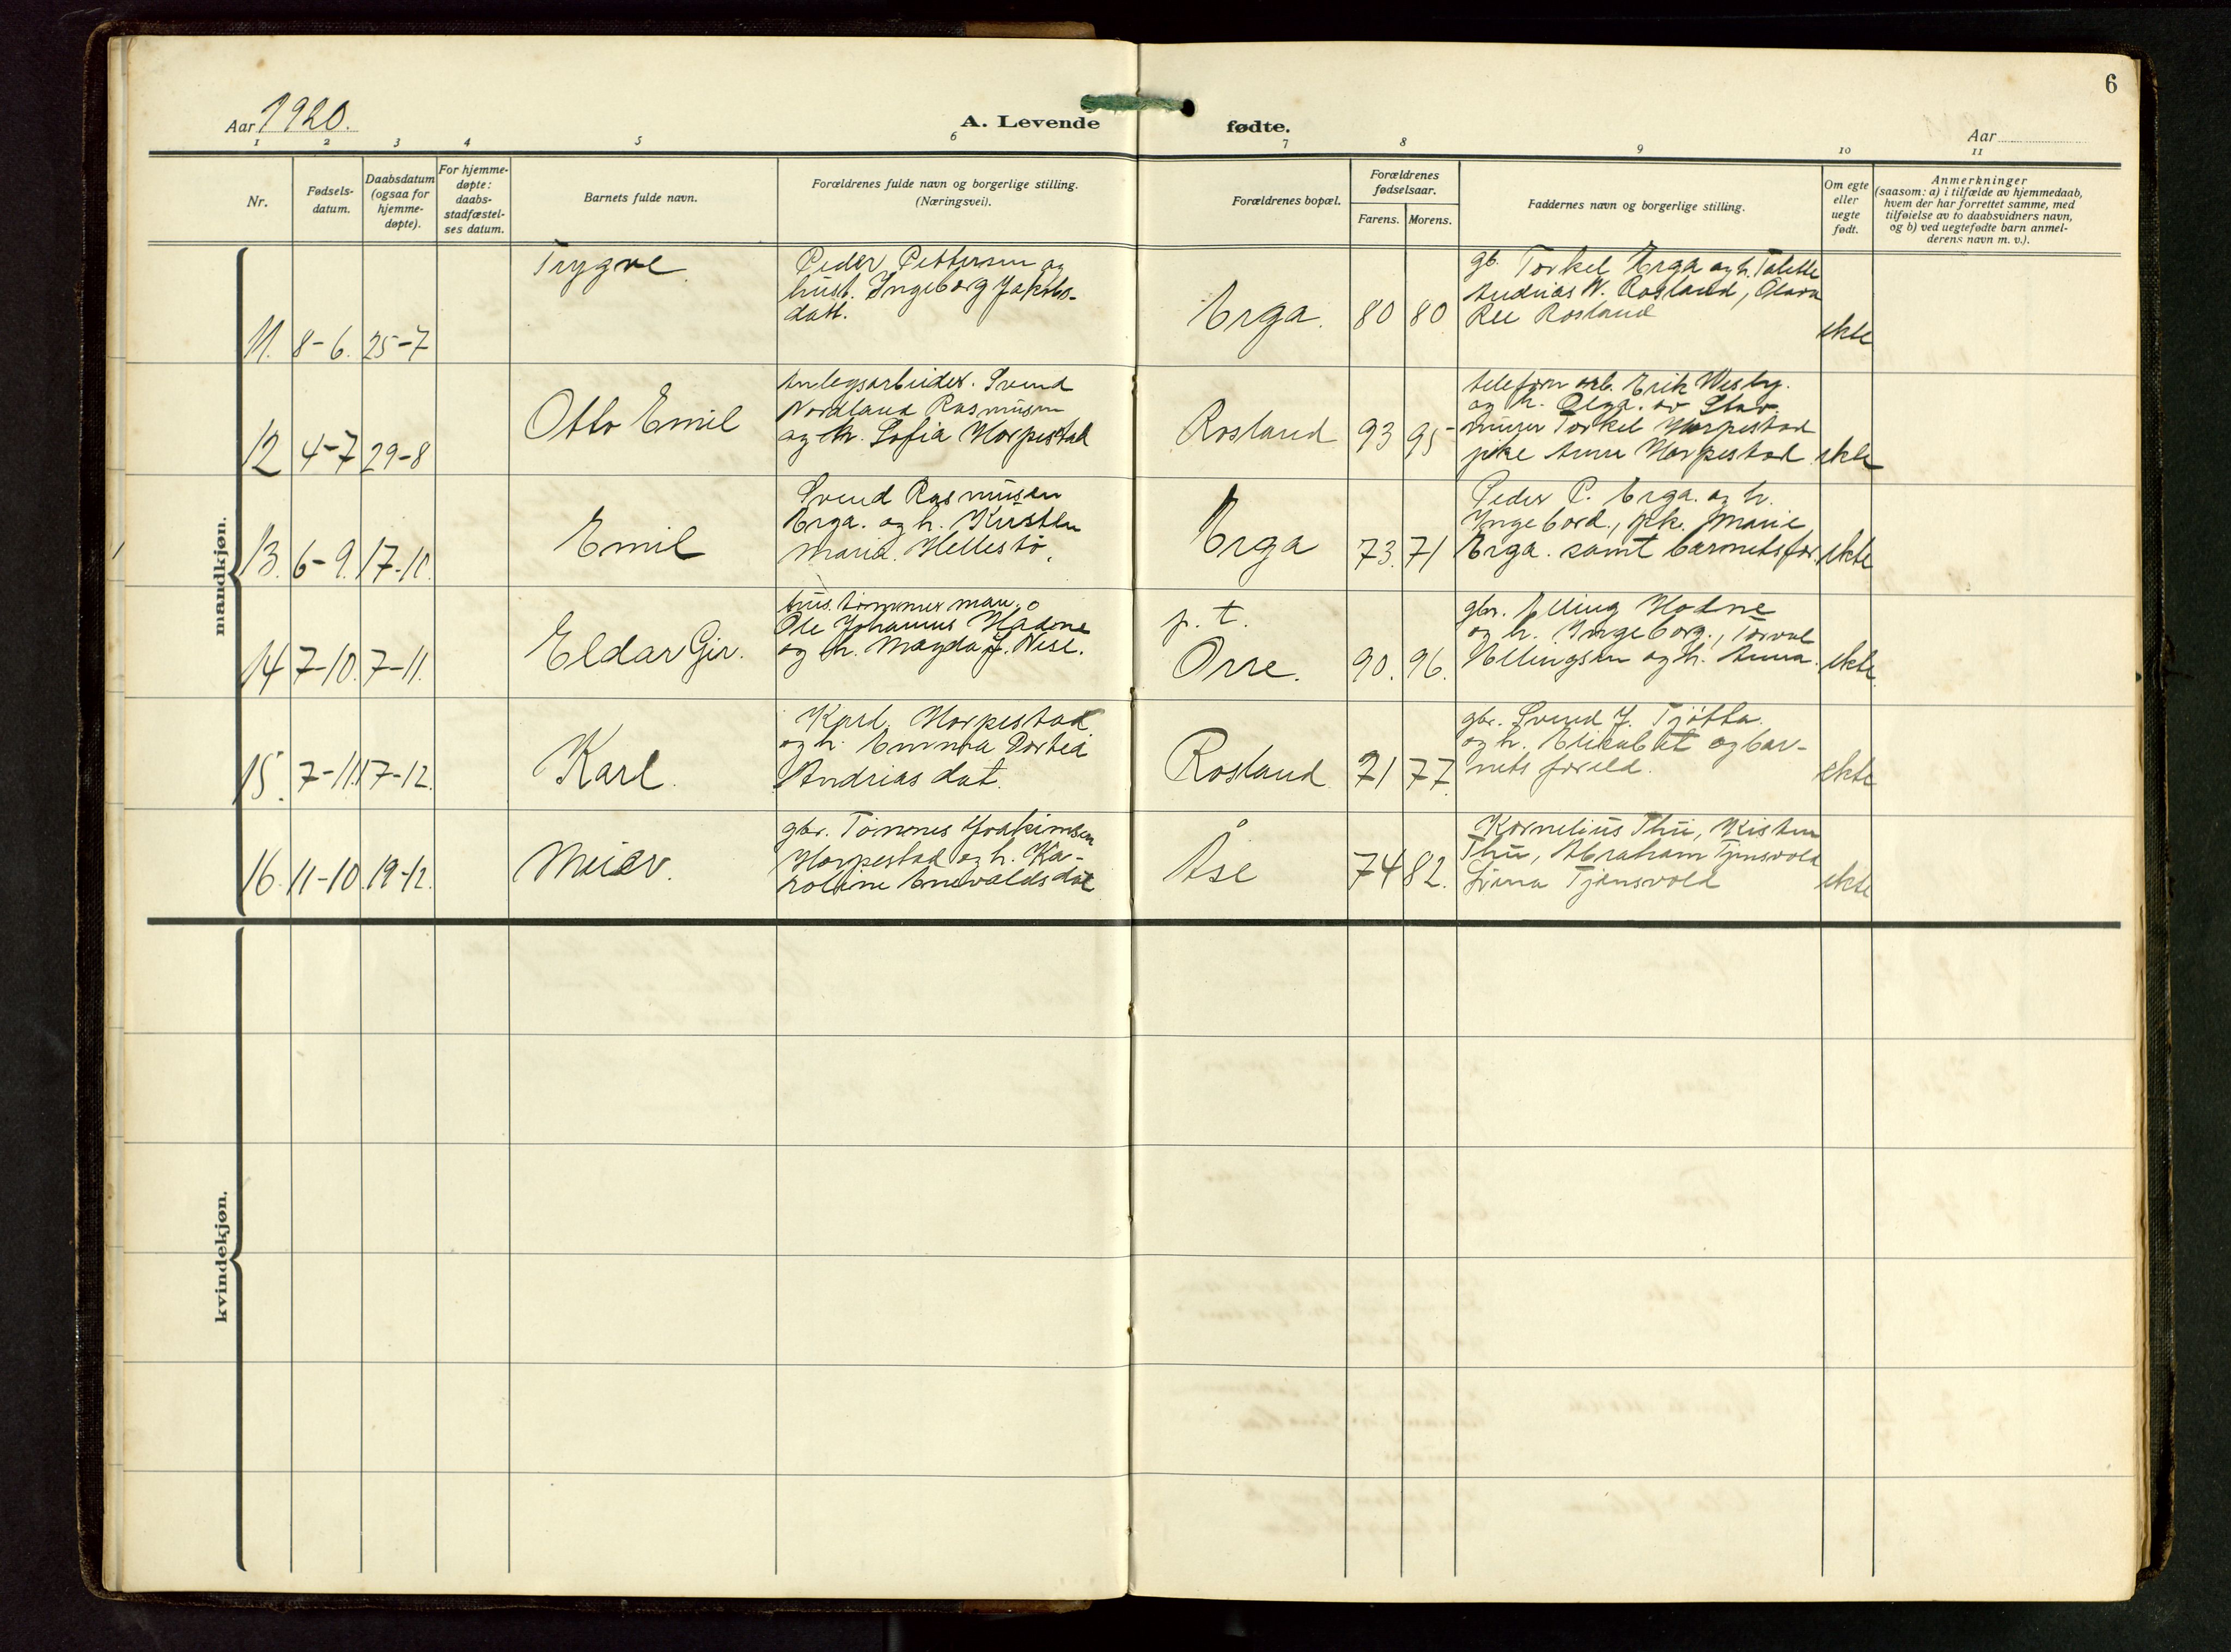 6
Aar 1920.
A. Levende fødte.
Aar
1 2 3 4 5 6 7 8 9 10 11
Nr.
Fødsels-
datum.
Daabsdatum
(ogsaa for
hjemme-
døpte).
For hjemme-
døpte:
daabs-
stadfæstel-
ses datum.
Barnets fulde navn.
Forældrenes fulde navn og borgerlige stilling.
(Næringsvei).
Forældrenes bopæl.
Forældrenes
fødselsaar.
Farens. Morens.
Faddernes navn og borgerlige stilling.
Om egte
eller
uegte
født.
Anmerkninger
(saasom: a) i tilfælde av hjemmedaab,
hvem der har forrettet samme, med
tilføielse av to daabsvidners navn,
og b) ved uegtefødte barn anmel-
derens navn m. v.).
mandkjøn.
11. 8-6. 25-7
Trygve
Peder Pettersen og
hust. Ingeborg Jakobs-
datt.
Erga. 80 80
gb. Torkel Erga og h. Talette
Andrias W. Rosland, Olava
Ree Rosland
ekte
12 4-7 29-8
Otto Emil
Anlegsarbeider. Svend
Nordland Rasmusen
og h. Sofia Horpestad
Rosland 93 95
telefon arb. Erik Wesby.
og h. Olga. av Stav.
murer Torkel Horpestad
pike Anna Horpestad
ekte
13. 6-9. 17-10.
Emil
Svend Rasmusen
Erga. og h. Kirsten
Maria. Hellestö.
Erga 73. 71
Peder P. Erga. og h.
Ingebord., pk. Marie
Erga. samt barnets far.
ekte
14 7-10. 7-11.
Eldar Gir.
hus. tömmerman.
Ole Johannes Hadne
og h. Magda J. Nese.
p. t.
Orre. 90. 96.
gbr. Elling Hodne
og h. Ingeborg., Torval
Ellingsen og h. Anna.
ekte.
15. 7-11. 17-12.
Karl.
Karl. Horpestad
og h. Emma Dortea
Andrias dat.
Rosland 71 77
gbr. Svend J. Tjötta.
og h. Elisabet og bar-
nets foreld.
ekte
16. 11-10. 19-12.
Meier.
gbr. Tönnes Joakimsen
Horpestad og h. Ka-
roline Enevaldsdat
Åse 74 82.
Kornelius Thu, Kisten
Thu, Abraham Tjensvold
Tjensvold
ekte
kvindekjøn.